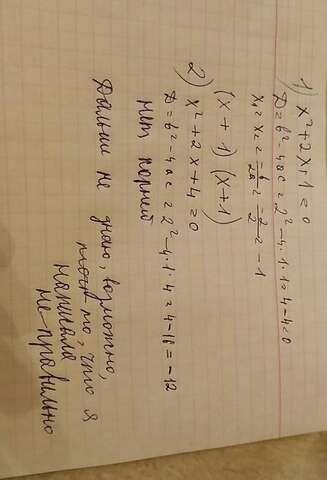 1) x²+2x+1=0
D=b²-4ac=2²-4·1·1=4-4=0
x₁=x₂=-b/2a=-2/2=-1
(x+1)(x+1)
2) x²+2x+4=0
D=b²-4ac=2²-4·1·4=4-16=-12
нет корней
Дальше не знаю, возможно,
то, что я
написала
не правильно